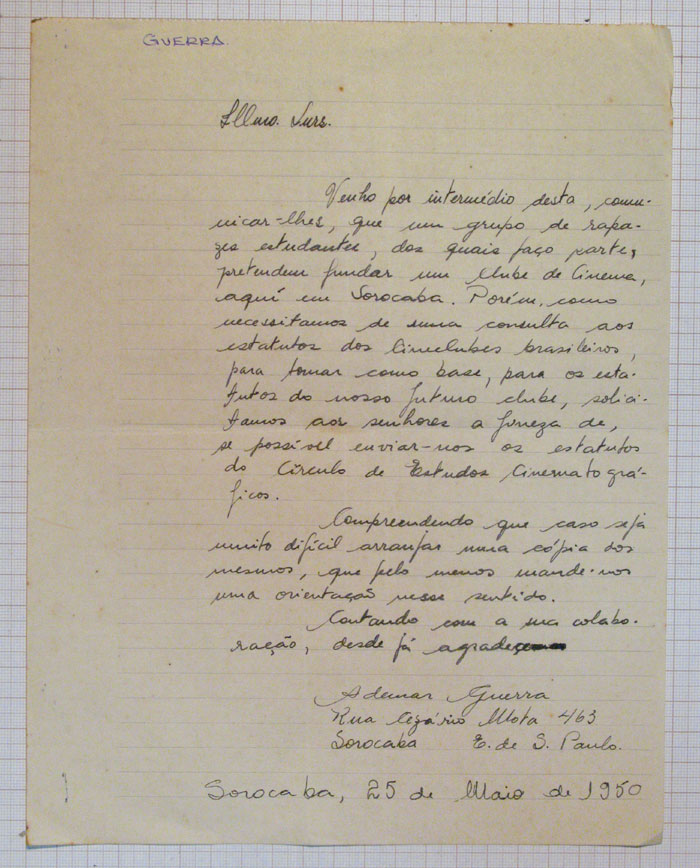 GUERRA.
Illmo. Snrs.
Venho por intermédio desta, comu-
nicar-lhes, que um grupo de rapa-
zes estudantes, dos quais faço parte,
pretendem fundar um Clube de Cinema,
aquí em Sorocaba. Porém, como
necessitamos de uma consulta aos
estatutos dos Cineclubes brasileiros,
para tomar como base, para os esta-
tutos do nosso futuro clube, solici-
tamos aos senhores a fineza de,
se possível enviar-nos os estatutos
do Círculo de Estudos Cinematográ-
ficos.
Compreendendo que caso seja
muito difícil arranjar uma cópia dos
mesmos, que pelo menos mande-nos
uma orientação nesse sentido.
Contando com a sua colabo-
ração, desde já
Ademar Guerra
Rua Cezário Mota 463
Sorocaba E. de S. Paulo.
Sorocaba, 25 de Maio de 1950